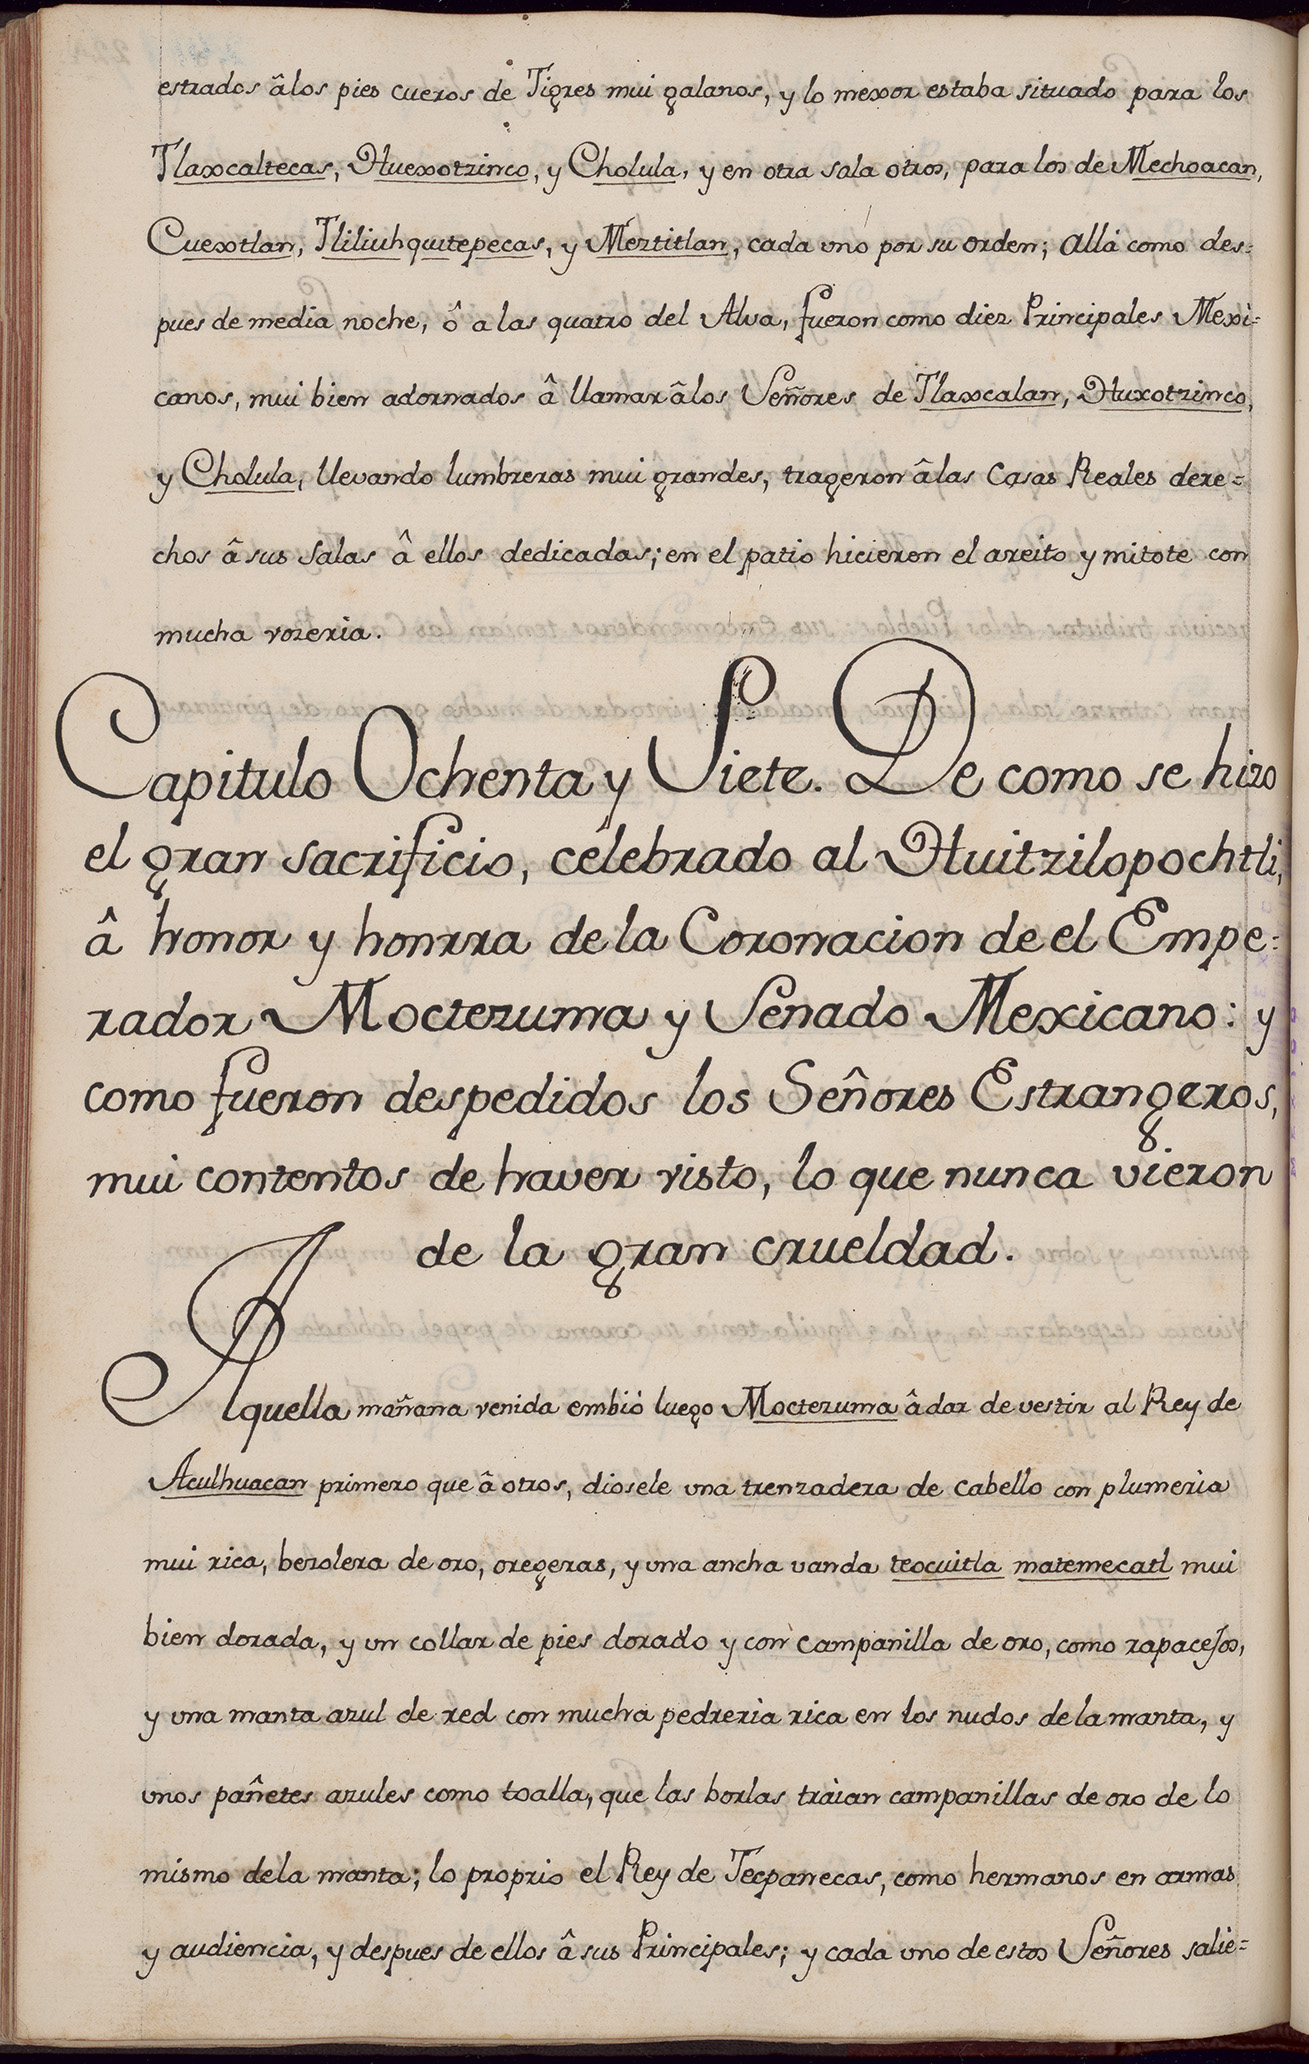 estrados âlos pies cueros de Tigres mui galanos, y lo mexor estaba situado para los
Tlaxcaltecas, Huexotzinco, y Cholula, y en otra sala otros, para los de Mechoacan,
Cuextlan, Tliliuhquitepecas, y Meztitlan, cada uno por su orden; allá como des=
pues de media noche, ô a las quatro del Alva, fueron como diez Principales Mexi=
canos, mui bien adornados â llamar âlos Señores de Tlaxcalan, Huxotzinco,
y Cholula, llevando lumbreras mui grandes, trageron âlas Casas Reales dere=
chos â sus salas â ellos dedicadas; en el patio hicieron el areito y mitote con
mucha vozeria.
Capitulo Ochenta y Siete. De como se hizo
el gran sacrificio, celebrado al Huitzilopochtli,
â honor y honrra de la Coronacion de el Empe=
rador Moctezuma y Senado Mexicano: y
como fueron despedidos los Señores Estrangeros,
mui contentos de haver visto, lo que nunca vieron
de la gran crueldad.
Aquella mañana venida embió luego Moctezuma â dar de vestir al Rey de
Aculhuacan primero que â otros, diosele una trenzadera de cabello con plumeria
mui rica, bezolera de oro, oregeras, y una ancha vanda teocuitla matemecatl mui
bien dorada, y un collar de pies dorado y con campanilla de oro, como rapacejos,
y una manta azul de red con mucha pedreria rica en los nudos dela manta, y
unos pañetes azules como toalla, que las borlas tràian campanillas de oro de lo
mismo dela manta; lo proprio el Rey de Tecpanecas, como hermanos en armas
y audiencia, y despues de ellos â sus Principales; y cada uno de estos Señores salie=